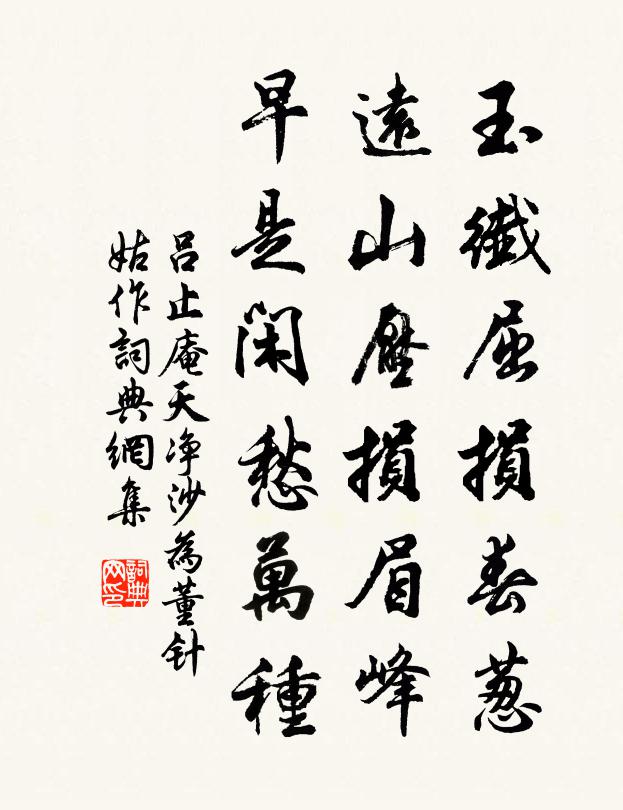 玉纖屈損春葱
遠山壓損眉峰
早是閑愁萬種
吕止庵天净沙為董针
姑作詞典網集
詞典网印